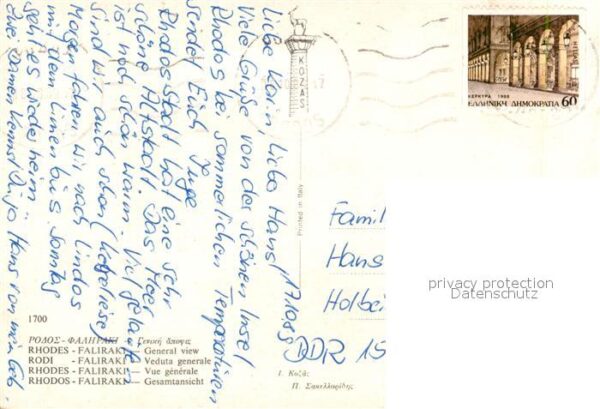 Liebe Karin, liebe Hans! 17.10.89
Viele Grüße von der schönen Insel
Rhodos bei sommerlichen Temperaturen
sendet Euch Inge
Rhodos Stadt hat eine sehr
schöne Altstadt. Das Meer
ist noch schön warm. Viel gelaufen
sind wir auch schon
Morgen fahren wir nach Lindos
mit dem Linienbus. Sonntag
geht es wieder heim.
Zwei Damen kennst Du ja Hans von mein Geb.
ΚΟΖΑΣ
ΚΕΡΚΥΡΑ 1988
ΕΛΛΗΝΙΚΗ ΔΗΜΟΚΡΑΤΙΑ 60
Printed in Italy
Famil
Hans
Holbei
DDR 15
privacy protection
Datenschutz
1700
ΡΟΔΟΣ - ΦΑΛΗΡΑΚΙ — Γενική άποψις
RHODES - FALIRAKI — General view
RODI - FALIRAKI — Veduta generale
RHODES - FALIRAKI — Vue générale
RHODOS - FALIRAKI — Gesamtansicht
Ι. Κοζάς
Π. Σακελλαρίδης